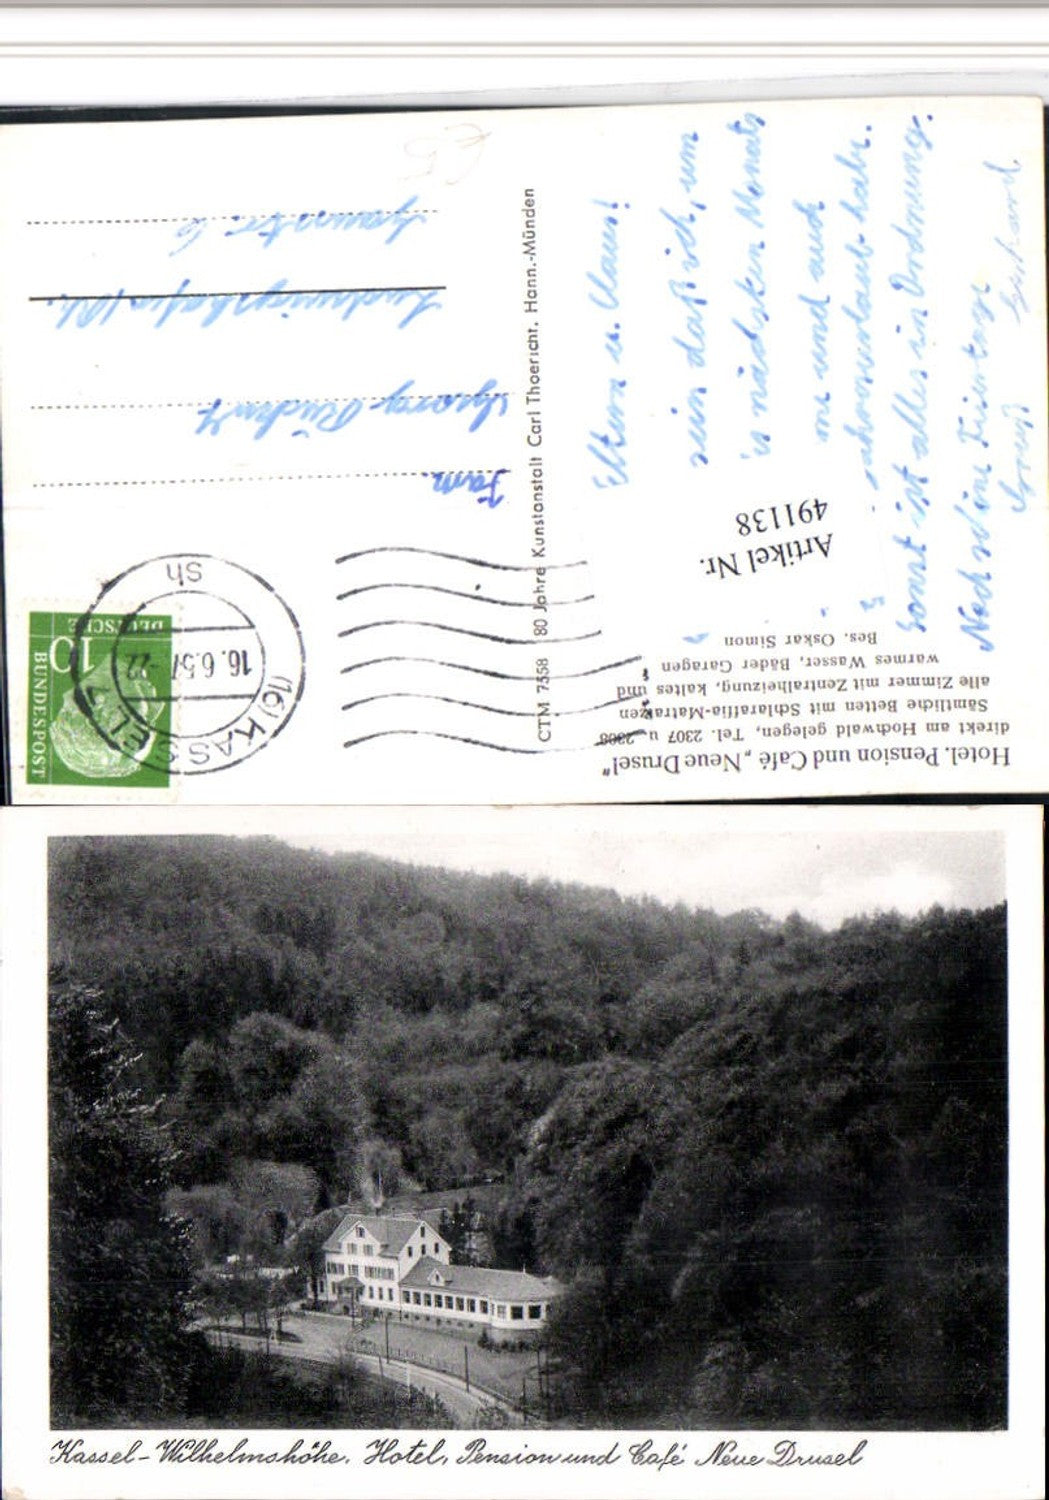 Hotel, Pension und Café „Neue Drusel"
direkt am Hochwald gelegen, Tel. 2307 u 2308
Sämtliche Betten mit Schlaraffia-Matratzen
alle Zimmer mit Zentralheizung, kaltes und
warmes Wasser, Bäder Garagen
Bes. Oskar Simon
Artikel Nr.
491138
Eltern u. Claus!
sein daß ich, um
nächsten Monats
und auch
habe.
Sonst ist alles in Ordnung.
Noch schöne Feiertage
Gruß
CTM 7558 80 Jahre Kunstanstalt Carl Thoericht, Hann.-Münden
(16) KASSEL 7
16.6.57-22
sh
DEUTSCHE
BUNDESPOST
10
Fam.
Georg
Ludwigshafen/Rh.
Kassel-Wilhelmshöhe. Hotel, Pension und Café Neue Drusel